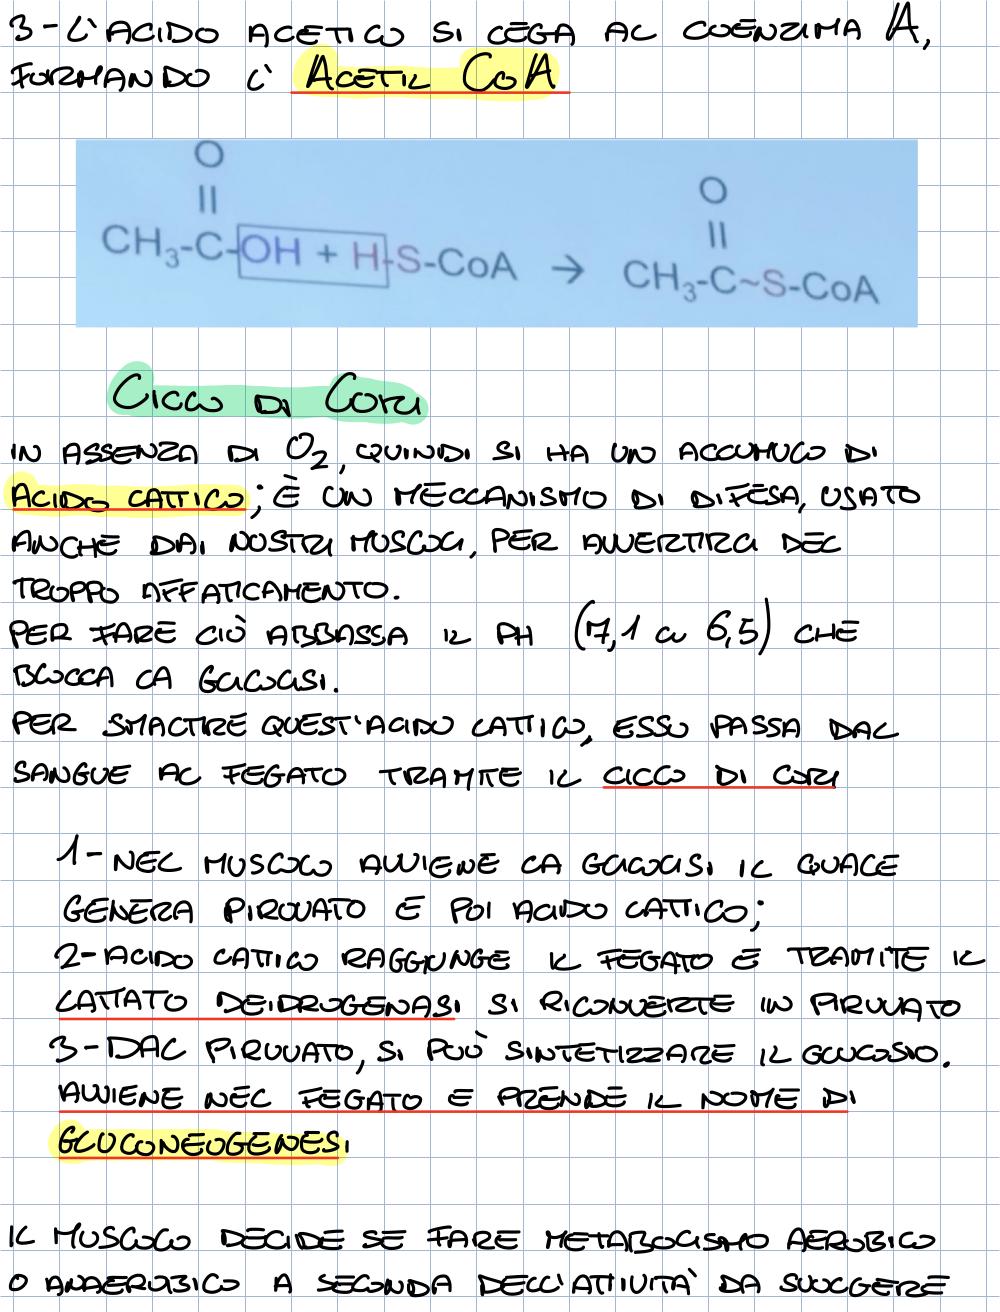 3-L'ACIDO ACETICO SI LEGA AL COENZIMA A,
FORMANDO L' ACETIL CoA
O
||
CH₃-C-OH + H-S-CoA → CH₃-C~S-CoA
O
||
CICLO DI CORI
IN ASSENZA DI O₂, QUINDI SI HA UN ACCUMULO DI
ACIDO LATTICO; È UN MECCANISMO DI DIFESA, USATO
ANCHE DAI NOSTRI MUSCOLI, PER AVVERTIRCI DEL
TROPPO AFFATICAMENTO.
PER FARE CIÒ ABBASSA IL PH (7,1 a 6,5) CHE
BLOCCA LA GLICOLISI.
PER SMALTIRE QUEST'ACIDO LATTICO, ESSO PASSA DAL
SANGUE AL FEGATO TRAMITE IL CICLO DI CORI
1-NEL MUSCOLO AVVIENE LA GLICOLISI IL QUALE
GENERA PIRUVATO E POI ACIDO LATTICO;
2-ACIDO LATTICO RAGGIUNGE IL FEGATO E TRAMITE IL
LATTATO DEIDROGENASI SI RICONVERTE IN PIRUVATO
3-DAL PIRUVATO, SI PUÒ SINTETIZZARE IL GLUCOSIO.
AVVIENE NEL FEGATO E PRENDE IL NOME DI
GLUCONEOGENESI
IL MUSCOLO DECIDE SE FARE METABOLISMO AEROBICO
O ANAEROBICO A SECONDA DELL'ATTIVITÀ DA SVOLGERE